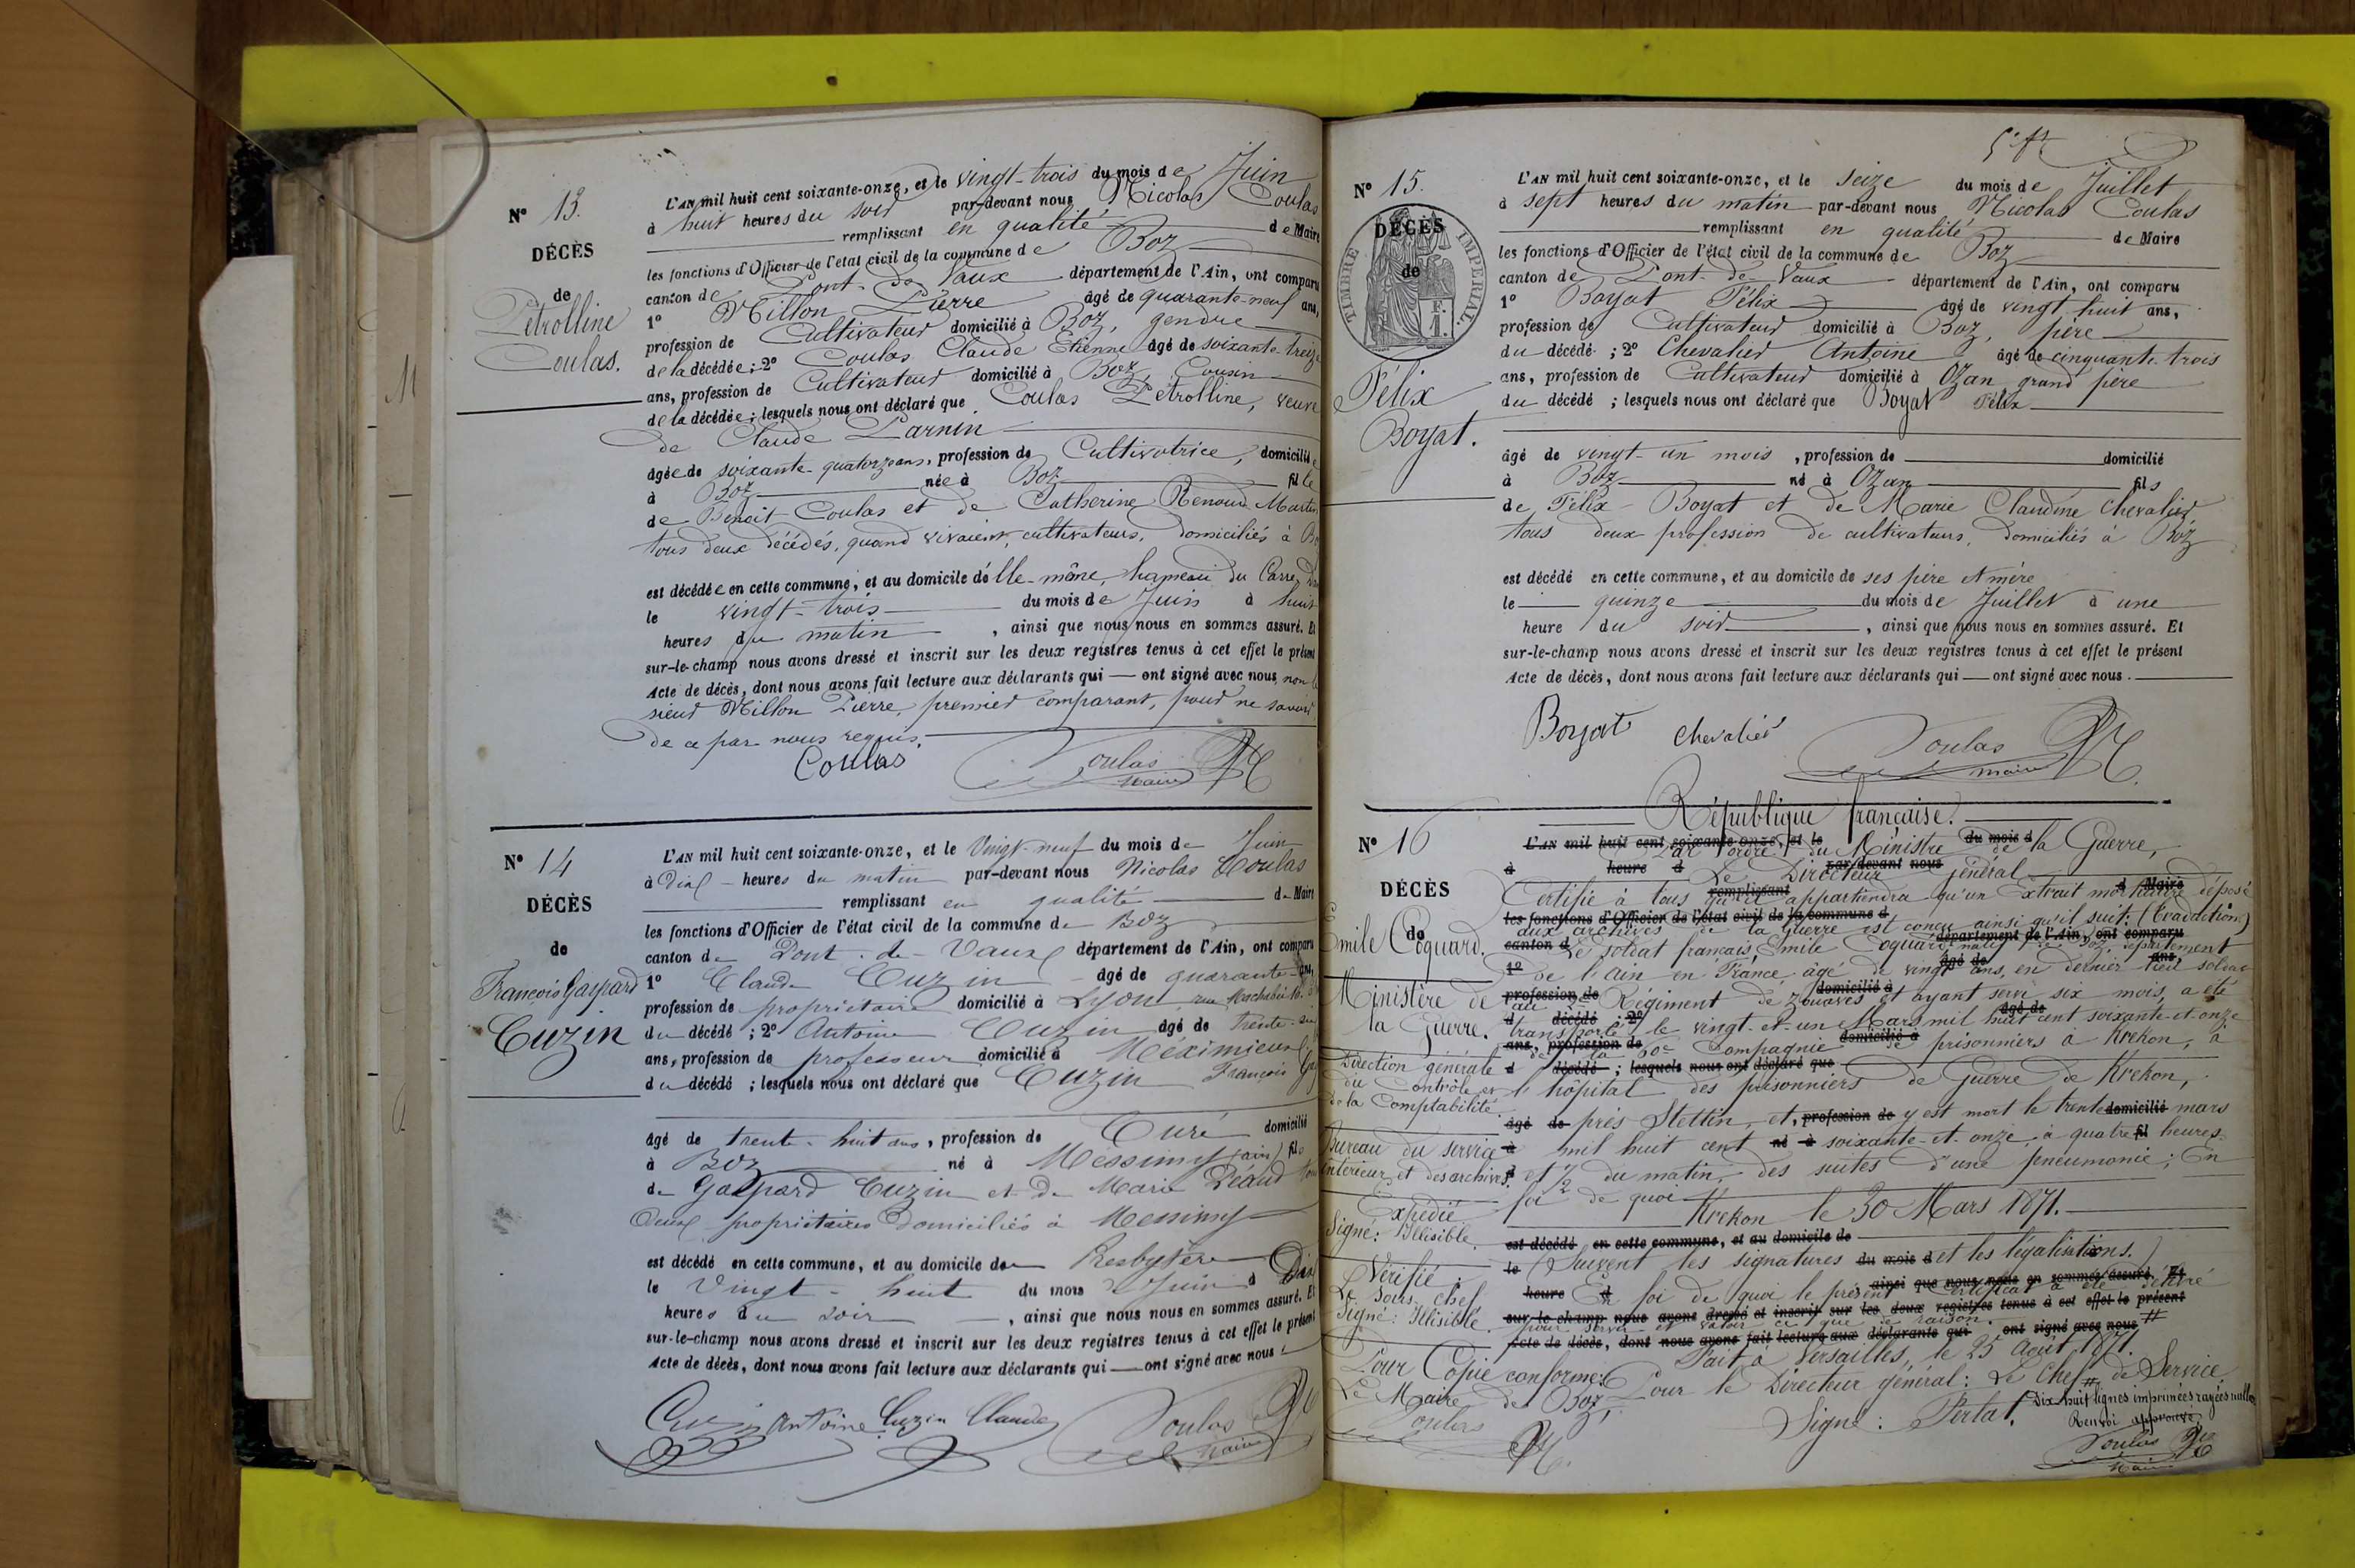 N° 13.
DÉCÈS
de
Pétrolline
Coulas.
L'AN mil huit cent soixante-onze, et le vingt-trois du mois de Juin
à huit heures du soir par-devant nous Nicolas Coulas
remplissant en qualité de Maire
les fonctions d'Officier de l'état civil de la commune de Boz
canton de Pont-de-Vaux département de l'Ain, ont comparu
1° Millon Pierre âgé de quarante-neuf ans,
profession de Cultivateur domicilié à Boz, gendre
de la décédée ; 2° Coulas Claude Etienne âgé de soixante-treize
ans, profession de Cultivateur domicilié à Boz, Cousin
de la décédée ; lesquels nous ont déclaré que Coulas Pétrolline, veuve
de Claude Parnin
âgée de soixante-quatorze ans, profession de Cultivatrice, domiciliée
à Boz née à Boz fille
de Benoit Coulas et de Catherine Renoud Martin
tous deux décédés, quand vivaient, cultivateurs, domiciliés à Boz
est décédée en cette commune, et au domicile d'elle-même, hameau du
le vingt-trois du mois de Juin à huit
heures du matin , ainsi que nous nous en sommes assuré. Et
sur-le-champ nous avons dressé et inscrit sur les deux registres tenus à cet effet le présent
Acte de décès, dont nous avons fait lecture aux déclarants qui — ont signé avec nous, non le
sieur Millon Pierre, premier comparant, pour ne savoir
de ce par nous requis.
Coulas
Coulas
maire
N° 14
DÉCÈS
de
François Gaspard
Cuzin
L'AN mil huit cent soixante-onze, et le Vingt-neuf du mois de Juin
à Dix heures du matin par-devant nous Nicolas Coulas
remplissant en qualité de Maire
les fonctions d'Officier de l'état civil de la commune de Boz
canton de Pont-de-Vaux département de l'Ain, ont comparu
1° Claude Cuzin âgé de quarante ans,
profession de propriétaire domicilié à Lyon rue
du décédé ; 2° Antoine Cuzin âgé de trente-six
ans, profession de professeur domicilié à Méximieux
du décédé ; lesquels nous ont déclaré que Cuzin François
âgé de trente-huit ans, profession de Curé domicilié
à Boz né à Messimy (ain) fils
de Gaspard Cuzin et de Marie Péaud tous
deux propriétaires domiciliés à Messimy
est décédé en cette commune, et au domicile du Presbytère
le Vingt-huit du mois de Juin à Dix
heures du soir , ainsi que nous nous en sommes assuré. Et
sur-le-champ nous avons dressé et inscrit sur les deux registres tenus à cet effet le présent
Acte de décès, dont nous avons fait lecture aux déclarants qui — ont signé avec nous
Cuzin Antoine Cuzin Claude
Coulas
maire
N° 15.
TIMBRE IMPÉRIAL
DÉCÈS
de
Félix
Boyat.
L'AN mil huit cent soixante-onze, et le Seize du mois de Juillet
à sept heures du matin par-devant nous Nicolas Coulas
remplissant en qualité de Maire
les fonctions d'Officier de l'état civil de la commune de Boz
canton de Pont-de-Vaux département de l'Ain, ont comparu
1° Boyat Félix âgé de vingt-huit ans,
profession de Cultivateur domicilié à Boz, père
du décédé ; 2° Chevalier Antoine âgé de cinquante-trois
ans, profession de Cultivateur domicilié à Ozan grand père
du décédé ; lesquels nous ont déclaré que Boyat Félix
âgé de vingt-un mois , profession de domicilié
à Boz né à Ozan fils
de Félix Boyat et de Marie Claudine Chevalier
tous deux profession de cultivateurs, domiciliés à Boz
est décédé en cette commune, et au domicile de ses père et mère
le quinze du mois de Juillet à une
heure du soir , ainsi que nous nous en sommes assuré. Et
sur-le-champ nous avons dressé et inscrit sur les deux registres tenus à cet effet le présent
Acte de décès, dont nous avons fait lecture aux déclarants qui — ont signé avec nous.
Boyat chevalier
Coulas
maire
N° 16
DÉCÈS
de
Emile Coquard.
Ministère de
la Guerre.
Direction générale
du Contrôle et
de la Comptabilité.
Bureau du service
intérieur et des archives.
Expédié
Signé: Illisible.
Vérifié:
Le Sous-chef
Signé: Illisible.
République française.
Par ordre du Ministre de la Guerre,
Le Directeur général
Certifie à tous qu'il appartiendra qu'un Extrait mortuaire déposé
aux archives de la Guerre est conçu ainsi qu'il suit: (Traduction)
Le soldat français Emile Coquard natif de Boz, département
de l'ain en France âgé de vingt ans, en dernier lieu soldat
au 2e Régiment de zouaves et ayant servi six mois, a été
transporté, le vingt-et-un Mars mil huit cent soixante-et-onze
de la 60e Compagnie de prisonniers à Krekon, à
l'hôpital des prisonniers de Guerre de Krekon,
près Stettin, et, y est mort le trente mars
mil huit cent soixante-et-onze, à quatre heures
et ½ du matin, des suites d'une pneumonie; En
foi de quoi
Krekon le 30 Mars 1871.
(Suivent les signatures et les légalisations.)
En foi de quoi le présent certificat a été délivré
pour servir et valoir ce que de raison.
Fait à Versailles, le 25 août 1871.
Pour le Directeur général: Le Chef de Service
Signé: Pertat.
Pour Copie conforme:
Le Maire de Boz,
Coulas
Dix-huit lignes imprimées rayées nulles
Renvoi approuvé
Coulas
maire